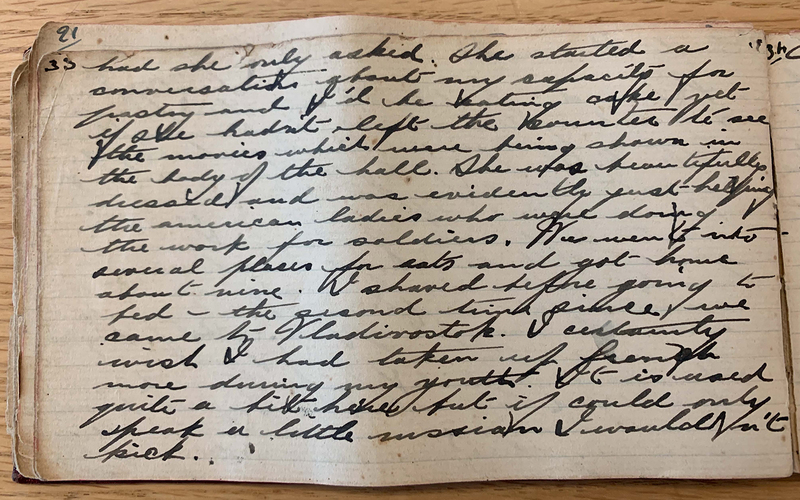 91
33 had she only asked. She started a
conversation about my capacity for
pastry and I'd be eating cake yet
if she hadn't left the counter to see
the movies which were being shown in
the body of the hall. She was beautifully
dressed and was evidently just helping
the american ladies who were doing
the work for soldiers. We went into
several places for eats and got home
about nine. I shaved before going to
bed - the second time since we
came to Vladivostok. I certainly
wish I had taken up french
more during my youth. It is used
quite a bit here but if could only
speak a little russian I wouldn't
kick.